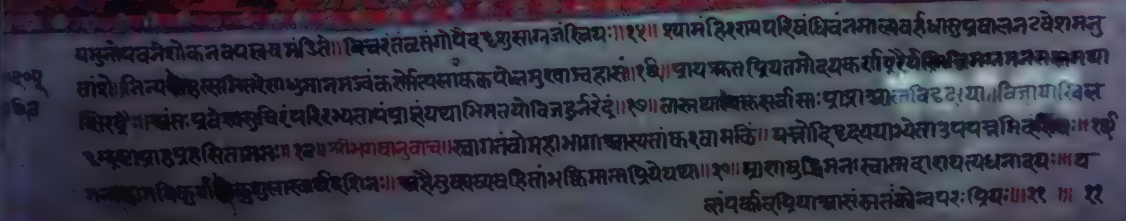 यमुनोपवनेशोकनवपल्लवमंडिते॥ विचरंतंवृतंगोपैर्ददृशुःसाग्रजंस्त्रियः॥१५॥ श्यामंहिरण्यपरिधिंवनमाल्यबर्हधातुप्रवालनटवेशमनु
व्रतांसे॥विन्यस्तहस्तमितरेणधुनानमब्जंकर्णोत्पलालककपोलमुखाब्जहासं॥१६॥ प्रायःश्रुतप्रियतमोदयकर्णपूरैर्यस्मिन्निमग्नमनसस्तमथा
क्षिरंध्रैः॥अंतःप्रवेश्यसुचिरंपरिरभ्यतापंप्राज्ञंयथाभिमतयोविजहुर्नरेंद्र॥१७॥ तास्तथात्यक्तसर्वाशाःप्राप्ताआत्मदिदृक्षया॥विज्ञायाखिल
दृग्द्रष्टाप्राहप्रहसिताननः॥१८॥श्रीभगवानुवाच॥स्वागतंवोमहाभागाआस्यतांकरवामकिं॥ यन्नोदिदृक्षयाभ्येताउपपन्नमिदंहिवः॥१९
मयिकुर्वंतिकुशलाःस्वार्थदर्शिनः॥ अहैतुक्यव्यवहितांभक्तिमात्मप्रियेयथा॥२०॥ प्राणबुद्धिमनःस्वात्मदारापत्यधनादयः॥य
त्संपर्कात्प्रियाआसंस्ततःकोन्वपरःप्रियः॥२१॥